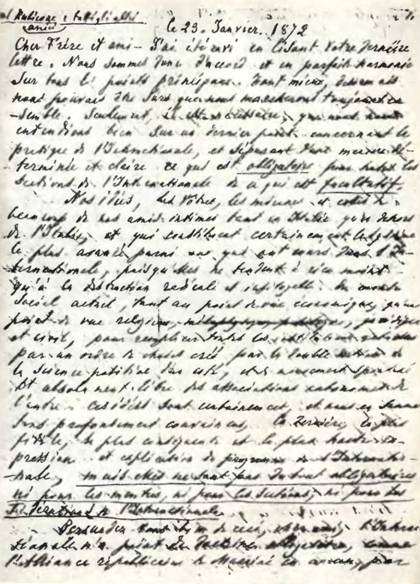 al Rubicone e tutti gli altri
amici
le 23. Janvier. 1872
Cher Frère et ami - J'ai été ravi en lisant votre dernière
lettre. Nous sommes donc d'accord et en parfaite harmonie
sur tous les points principaux. Tant mieux, désormais
nous pouvons être sûrs que nous marcherons toujours en-
semble. Seulement, il est nécessaire, que nous nous
entendions bien sur un dernier point concernant la
pratique de l'Internationale, et séparant d'une manière dé-
terminée et claire ce qui est obligatoire pour toutes les
Sections de l'Internationale de ce qui est facultatif.
Nos idées, les vôtres, les miennes et celles de
beaucoup de nos amis intimes tant en Italie qu'en dehors
de l'Italie, et qui constituent certainement le système
le plus avancé parmi ceux qui ont cours dans l'In-
ternationale, puisqu'elles ne tendent à rien moins
qu'à la destruction radicale du monde
social actuel, tant au point de vue économique, qu'au
point de vue religieux, juridique
et civil, pour remplacer toutes les
par un ordre de choses créé par la double action de
la science positive d'un côté, et du mouvement spontané
et absolument libre des associations autonomes de
l'autre - ces idées sont certainement, et nous en sommes
tous profondément convaincus, la dernière, la plus
fidèle, la plus conséquente et la plus haute ex-
pression et explication du programme de l'Internatio-
nale, mais elles ne sont pas du tout obligatoires
ni pour les membres, ni pour les sections, ni pour les
Fédérations de l'Internationale.
de ceci, l'Interna-
tionale n'a point de obligatoire, comme
l'Alliance républicaine de Mazzini en a un, par